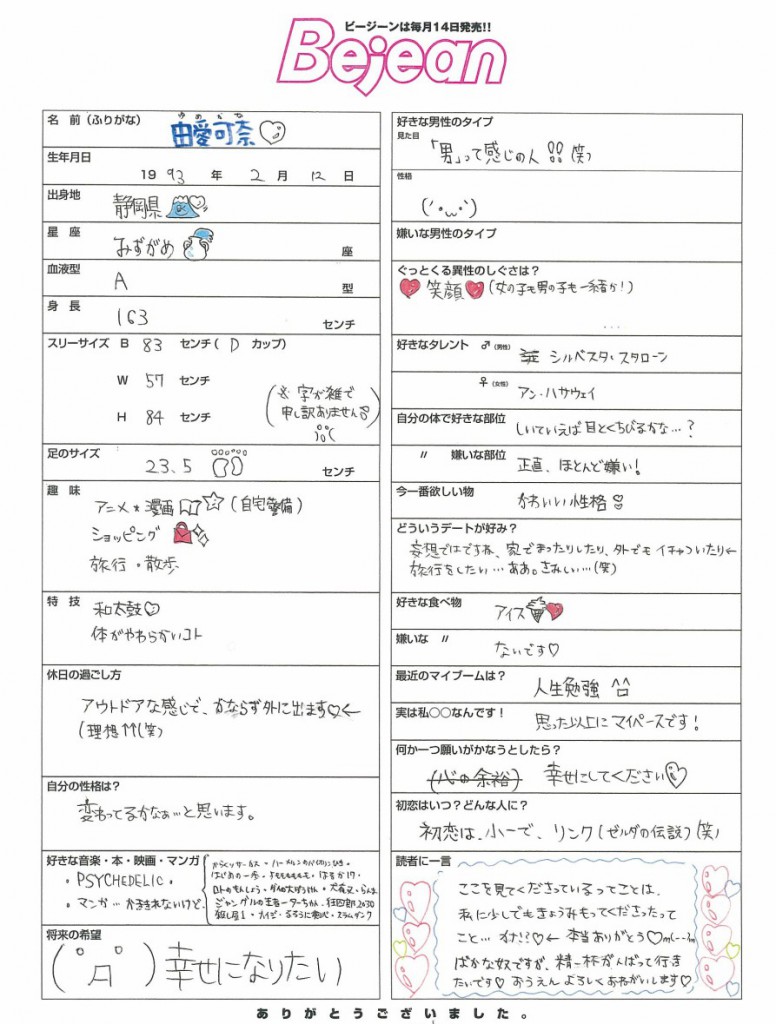 ビージーンは毎月14日発売!!
Bejean
名 前(ふりがな)
ゆめかな
由愛可奈♡
生年月日
1993年 2月 12日
出身地
静岡県
星 座
みずがめ 座
血液型
A 型
身 長
163 センチ
スリーサイズ B 83 センチ( D カップ)
W 57 センチ
H 84 センチ
(※ 字が雑で
申し訳ありません
足のサイズ
23.5 センチ
趣 味
アニメ★漫画 ☆(自宅警備)
ショッピング
旅行・散歩
特 技
和太鼓♡
体がやわらかいコト
休日の過ごし方
アウトドアな感じで、かならず外に出ます♡←
(理想↑↑(笑)
自分の性格は?
変わってるかなぁ…と思います。
好きな音楽・本・映画・マンガ
・PSYCHEDELIC・
・マンガ…かききれないけど、
からくりサーカス・ハーメルンのバイオリンひき・
はじめの一歩・
犬夜叉・らんま
ジャングルの王者ターちゃん・狂四郎2030
殺し屋1・カイジ・るろうに剣心・スラムダンク
将来の希望
幸せになりたい
好きな男性のタイプ
見た目
「男」って感じの人!!(笑)
性格
(´・ω・`)
嫌いな男性のタイプ
ぐっとくる異性のしぐさは?
笑顔 (女の子も男の子も一緒か!)
...
好きなタレント ♂(男性)
シルベスタ・スタローン
♀(女性)
アン・ハサウェイ
自分の体で好きな部位
しいていえば目とくちびるかな…?
〃 嫌いな部位
正直、ほとんど嫌い!
今一番欲しい物
かわいい性格
どういうデートが好み?
妄想ではですね、家でまったりしたり、外でもイチャついたり←
旅行をしたい…ああ。さみしい…(笑)
好きな食べ物
アイス
嫌いな 〃
ないです♡
最近のマイブームは?
人生勉強 ^^
実は私○○なんです!
思った以上にマイペースです!
何か一つ願いがかなうとしたら?
(心の余裕) 幸せにしてください♡
初恋はいつ?どんな人に?
初恋は、小一で、リンク(ゼルダの伝説)(笑)
読者に一言
ここを見てくださっているってことは、
私に少しでもきょうみもってくださったって
こと…すか!?♡← 本当ありがとう♡m(--)m
ばかな奴ですが、精一杯がんばって行き
たいです♡おうえんよろしくおねがいします♡
ありがとうございました。